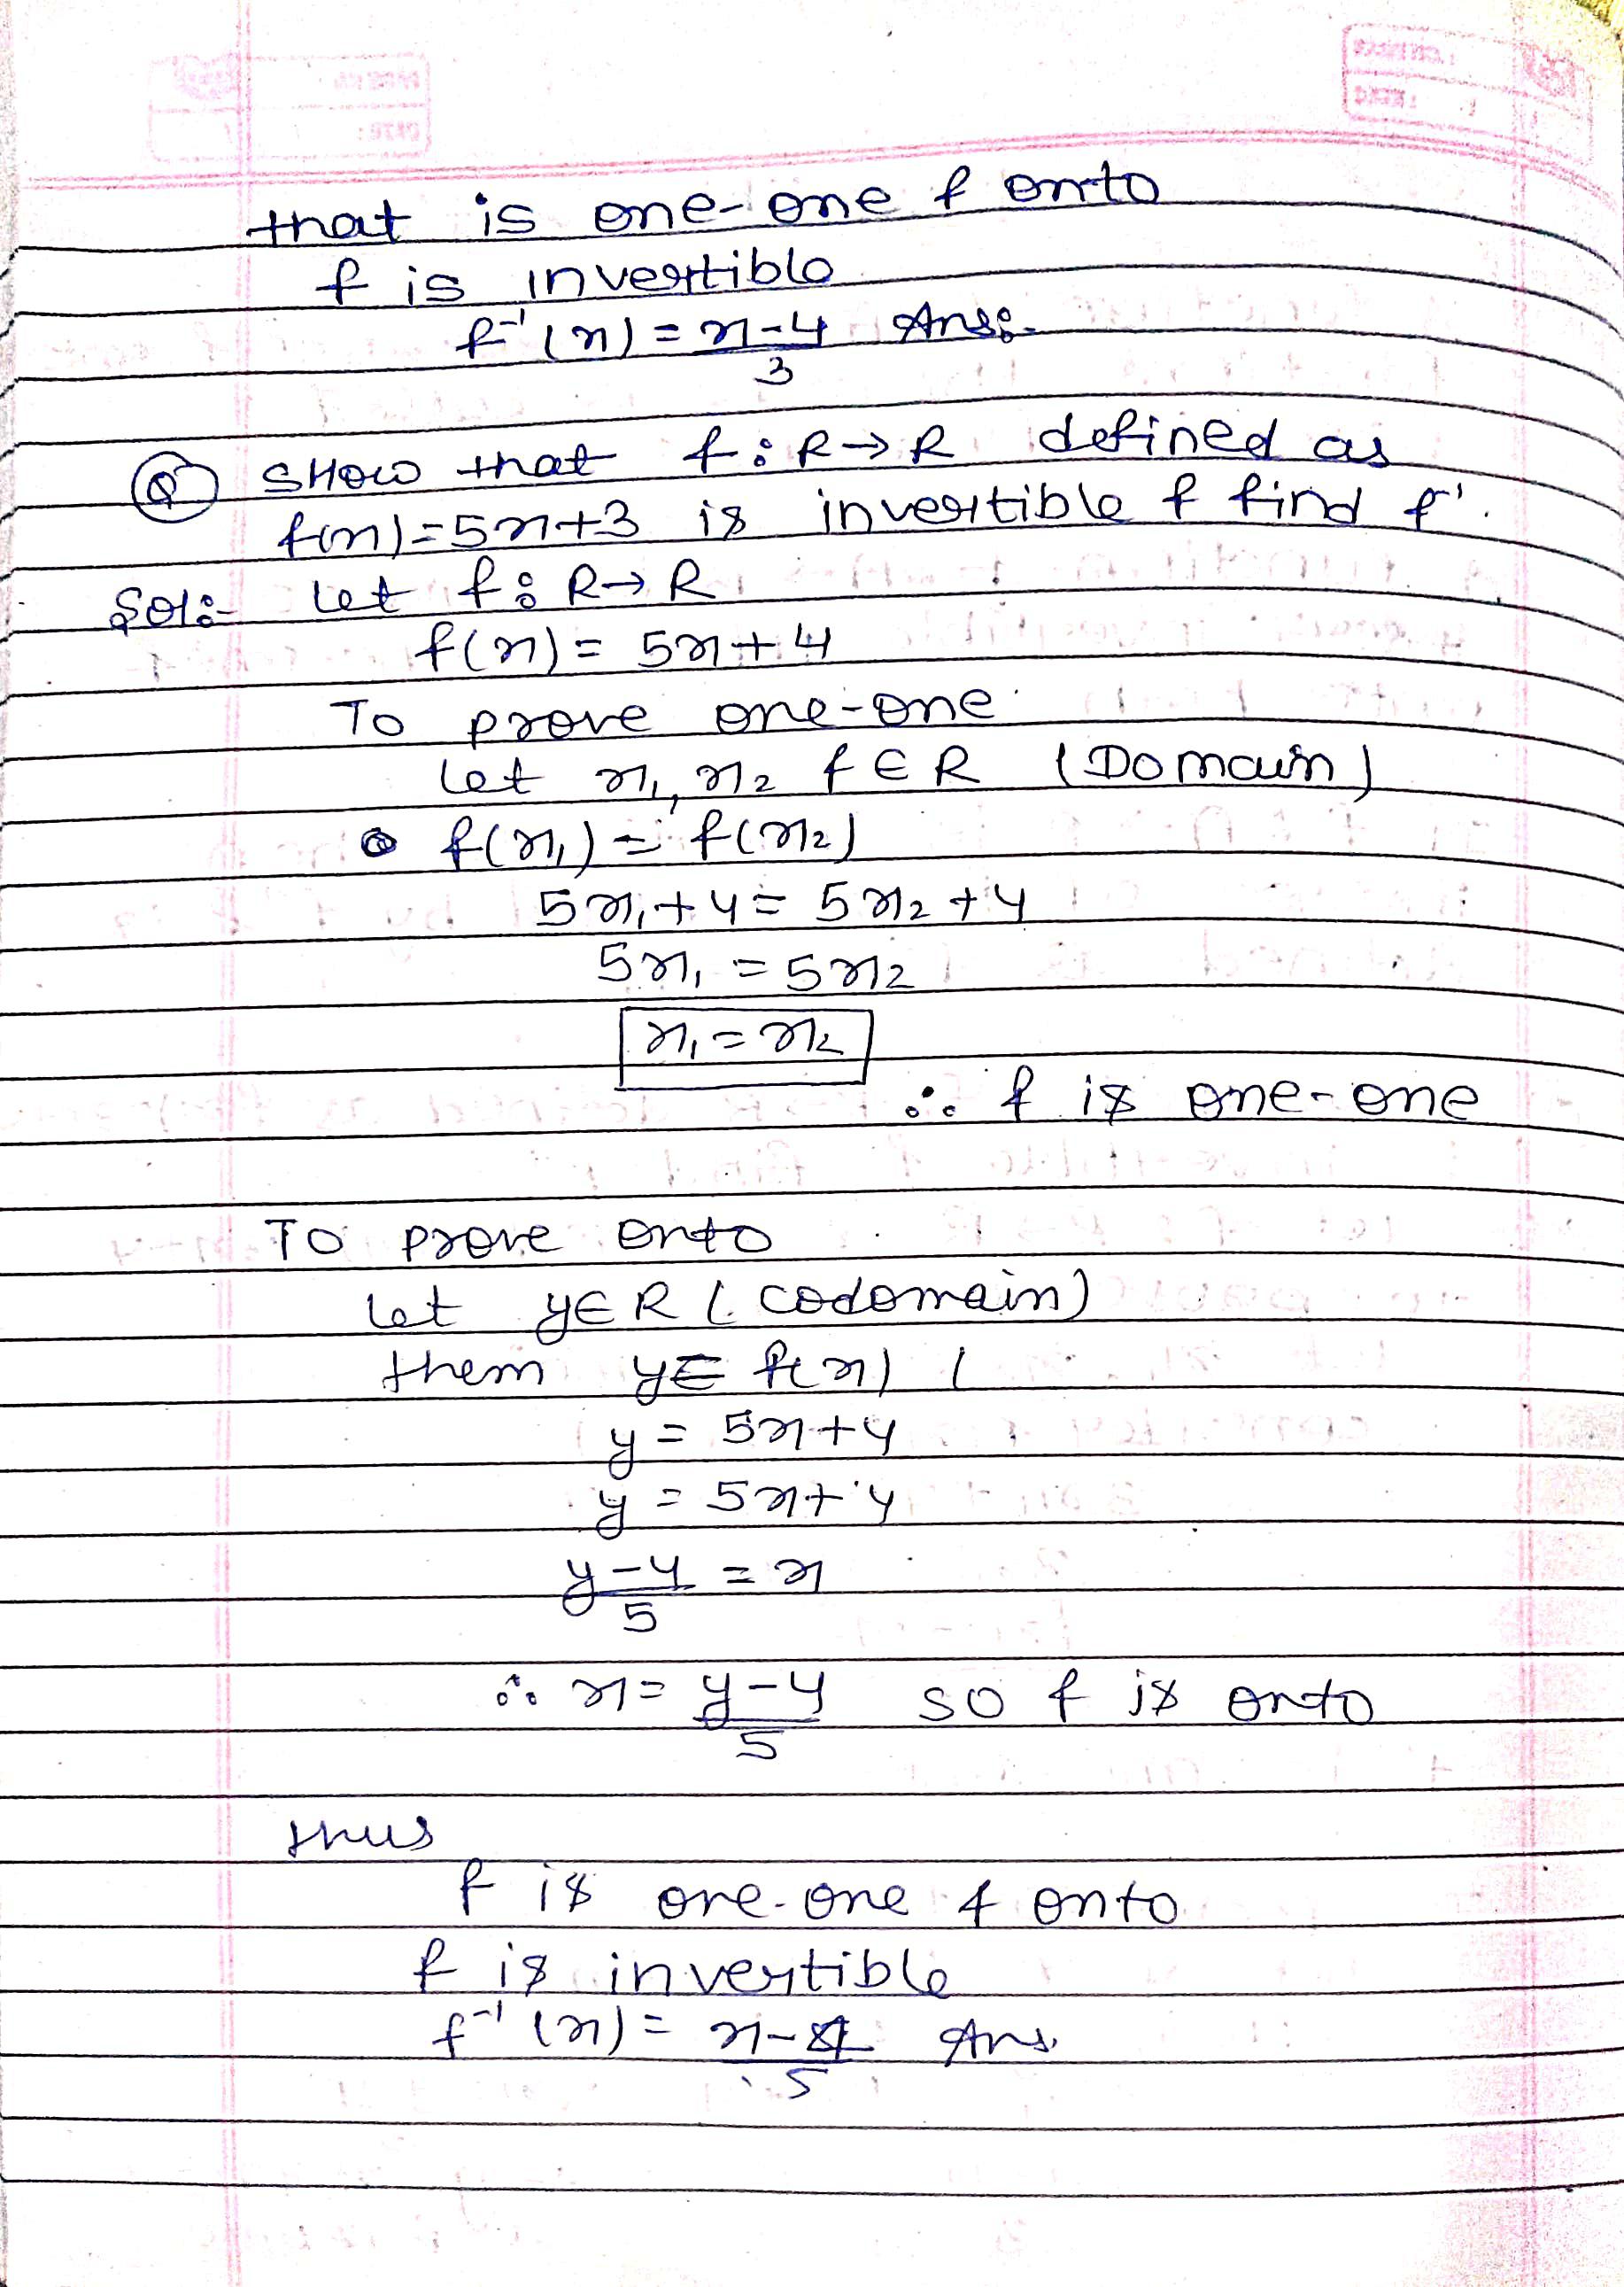 that is one-one & onto
f is invertible
f⁻¹(x) = x-4 Ans:-
3
Q Show that f: R→R defined as
f(x)=5x+3 is invertible & find f'.
Sol:- Let f: R→R
f(x) = 5x+4
To prove one-one
let x₁, x₂ & ∈ R (Domain)
f(x₁) = f(x₂)
5x₁+4 = 5x₂+4
5x₁ = 5x₂
x₁ = x₂
∴ f is one-one
To prove onto
let y∈R (codomain)
them y∈ f(x) (
y = 5x+4
y = 5x+4
y-4 = x
5
∴ x = y-4 so f is onto
5
thus
f is one-one & onto
f is invertible
f⁻¹(x) = x-4 Ans.
5